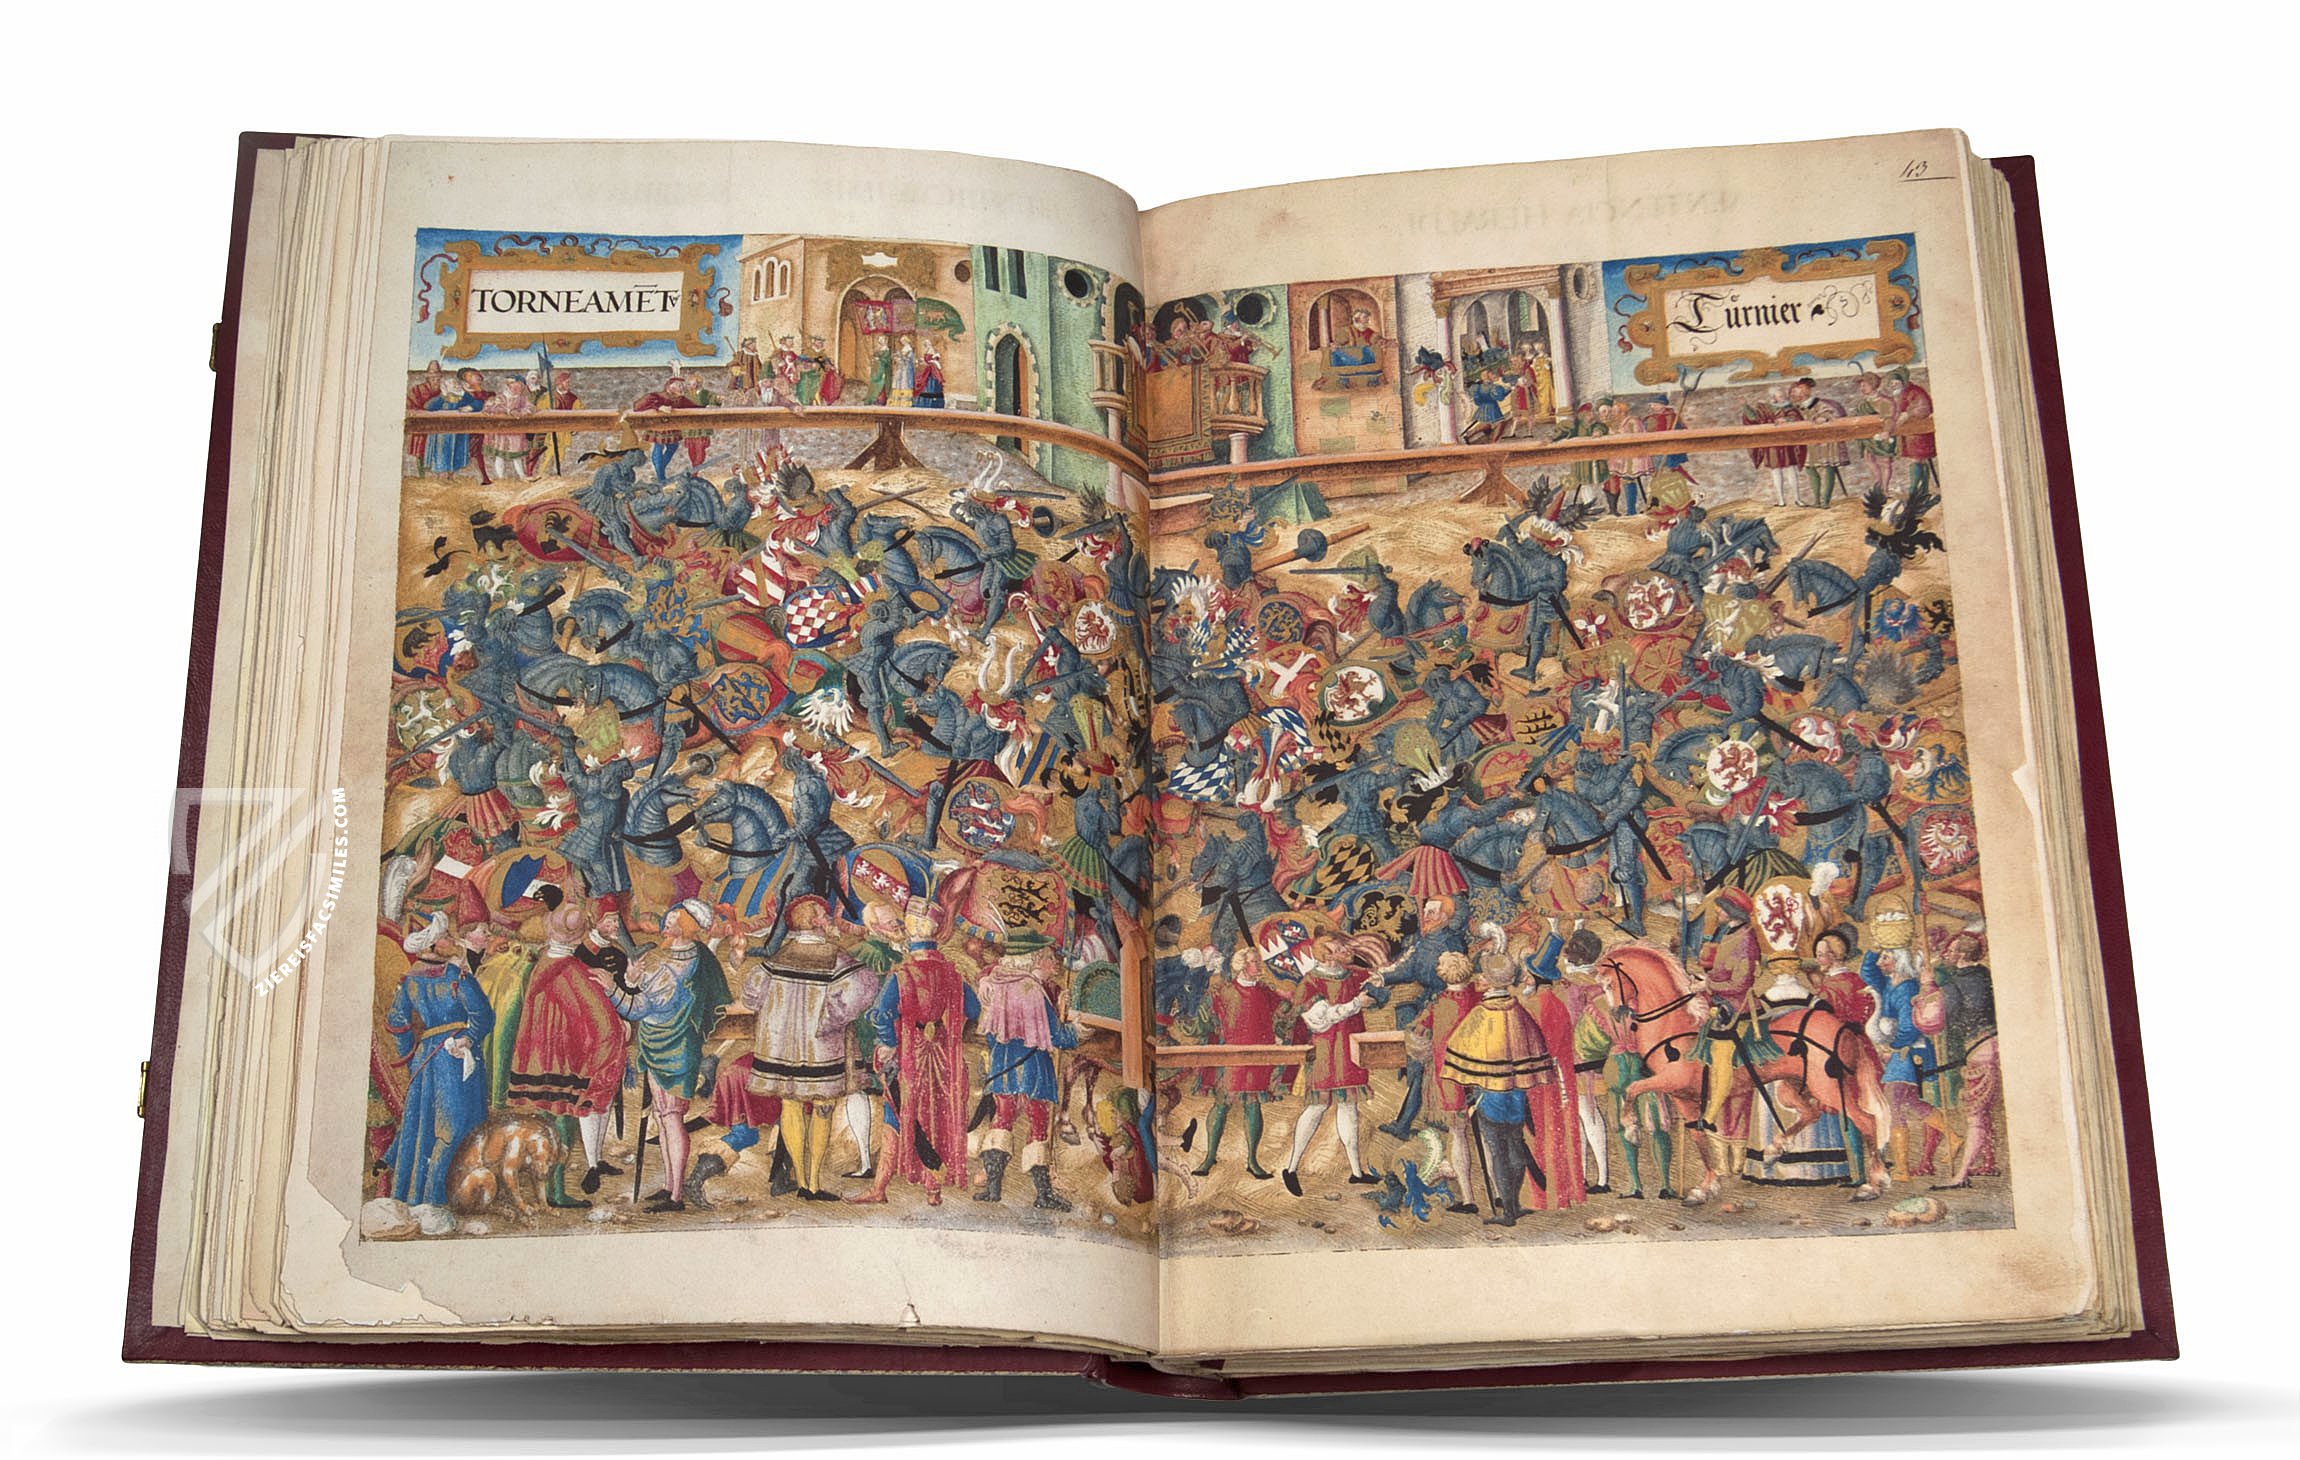 43
TORNEAMẼTA
Tůrnier
ZIEREISFACSIMILES.COM